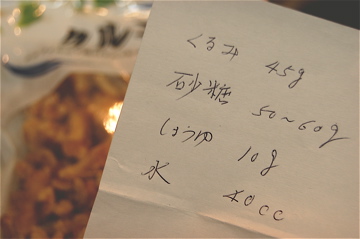 クルミ
くるみ 45g
砂糖 50~60g
しょうゆ 10g
水 40cc